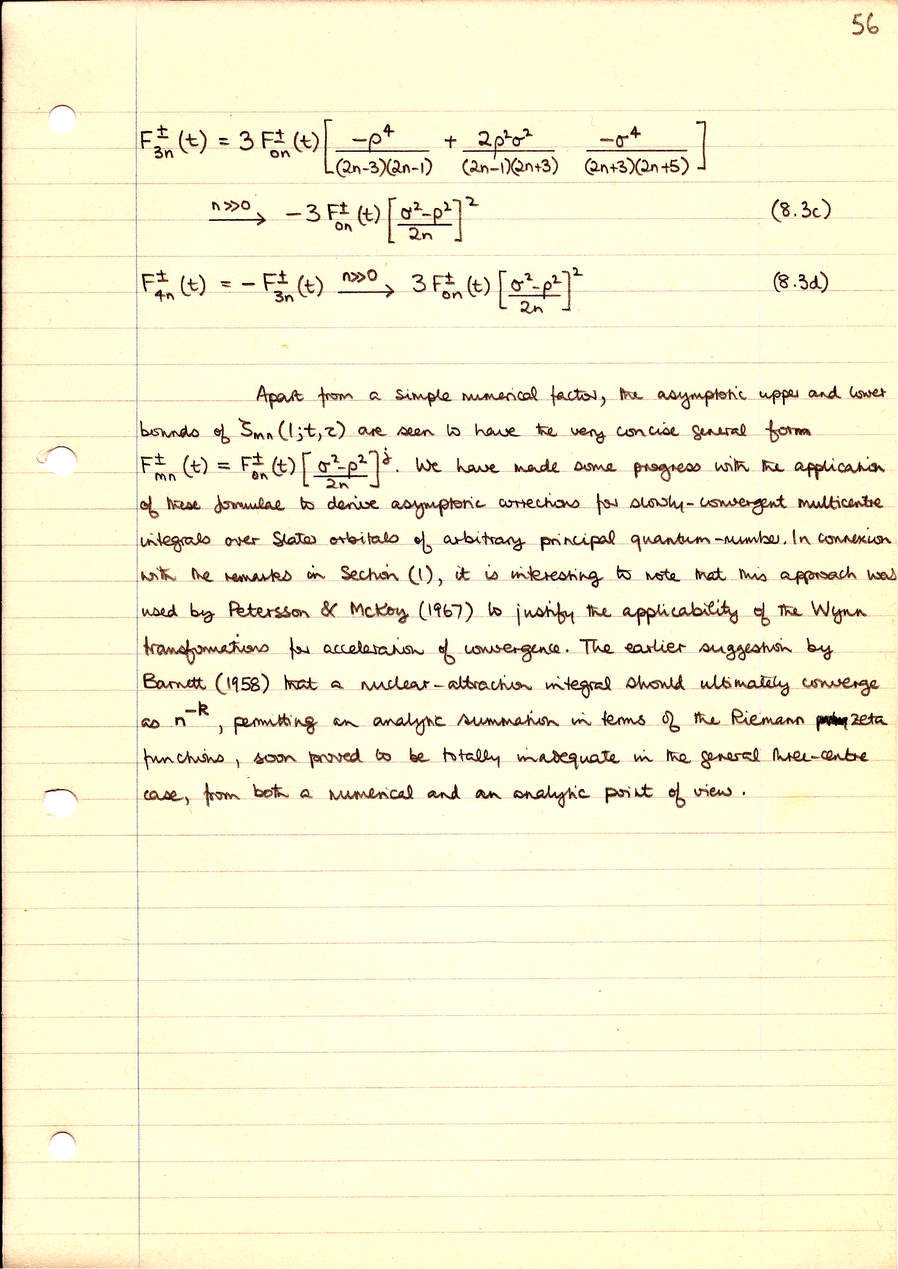 56
F±3n (t) = 3 F±0n (t) [ −ρ⁴/(2n−3)(2n−1) + 2ρ²σ²/(2n−1)(2n+3) −σ⁴/(2n+3)(2n+5) ]
n≫0 ⟶ −3 F±0n (t) [ (σ²−ρ²)/2n ]² (8.3c)
F±4n (t) = − F±3n (t) n≫0 ⟶ 3 F±0n (t) [ (σ²−ρ²)/2n ]² (8.3d)
Apart from a simple numerical factor, the asymptotic upper and lower
bounds of Smn (1;t,τ) are seen to have the very concise general form
F±mn (t) = F±0n (t) [ (σ²−ρ²)/2n ]ʲ. We have made some progress with the application
of these formulae to derive asymptotic corrections for slowly-convergent multicentre
integrals over Slater orbitals of arbitrary principal quantum-number. In connexion
with the remarks in Section (1), it is interesting to note that this approach was
used by Petersson & McKoy (1967) to justify the applicability of the Wynn
transformations for acceleration of convergence. The earlier suggestion by
Barnett (1958) that a nuclear-attraction integral should ultimately converge
as n⁻ᵏ, permitting an analytic summation in terms of the Riemann zeta
functions, soon proved to be totally inadequate in the general three-centre
case, from both a numerical and an analytic point of view.